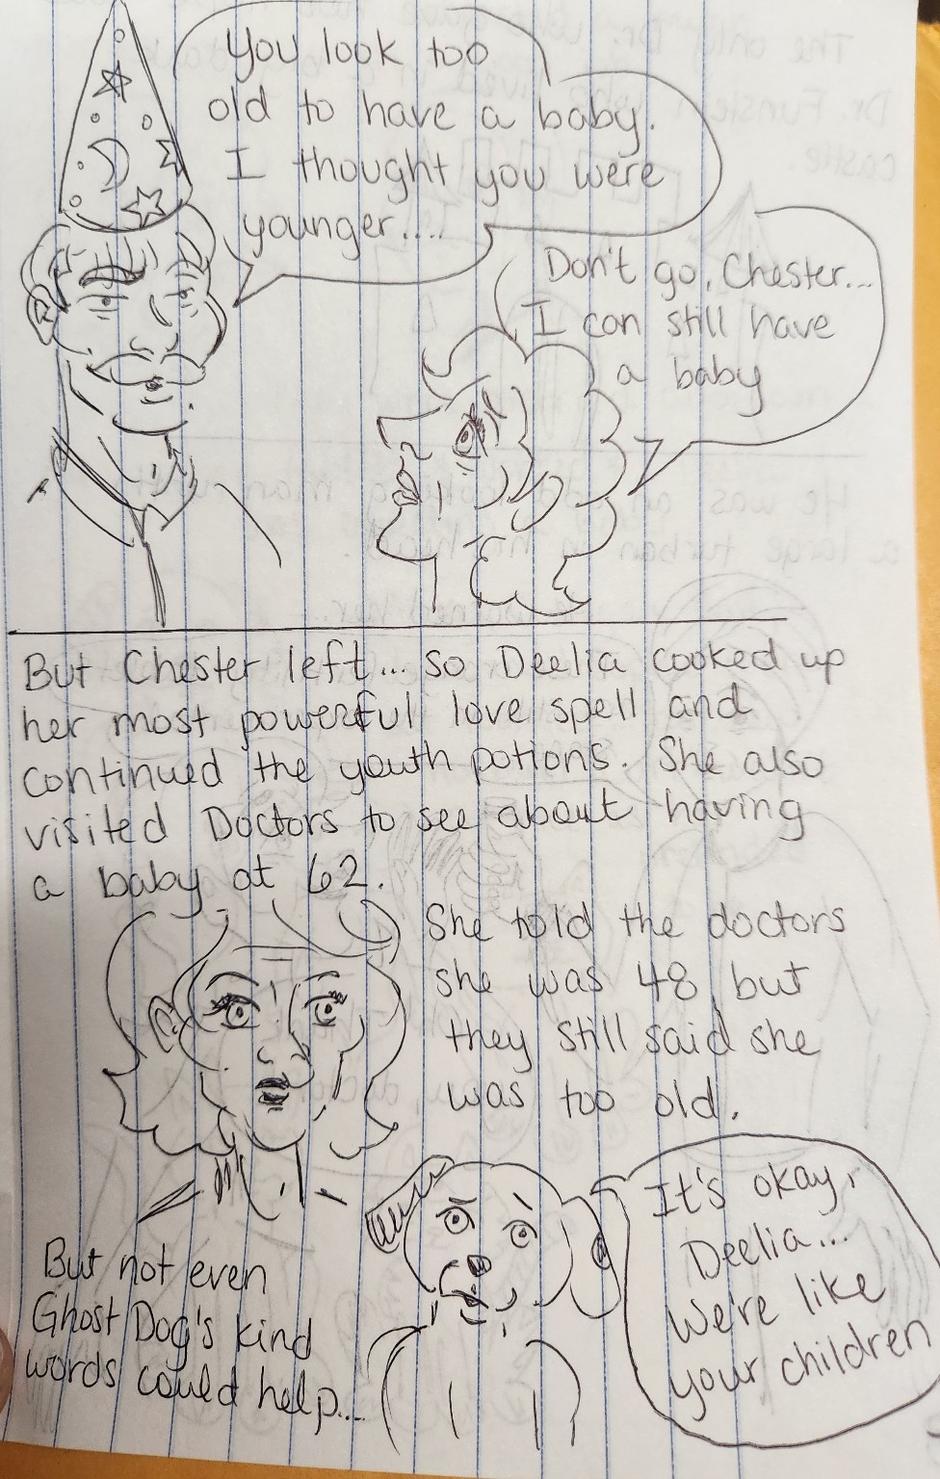 You look too
old to have a baby.
I thought you were
younger....
Don't go, Chester...
I can still have
a baby
But Chester left... so Deelia cooked up
her most powerful love spell and
continued the youth potions. She also
visited Doctors to see about having
a baby at 62.
She told the doctors
she was 48, but
they still said she
was too old.
It's okay,
Deelia...
We're like
your children
But not even
Ghost Dog's kind
words could help...